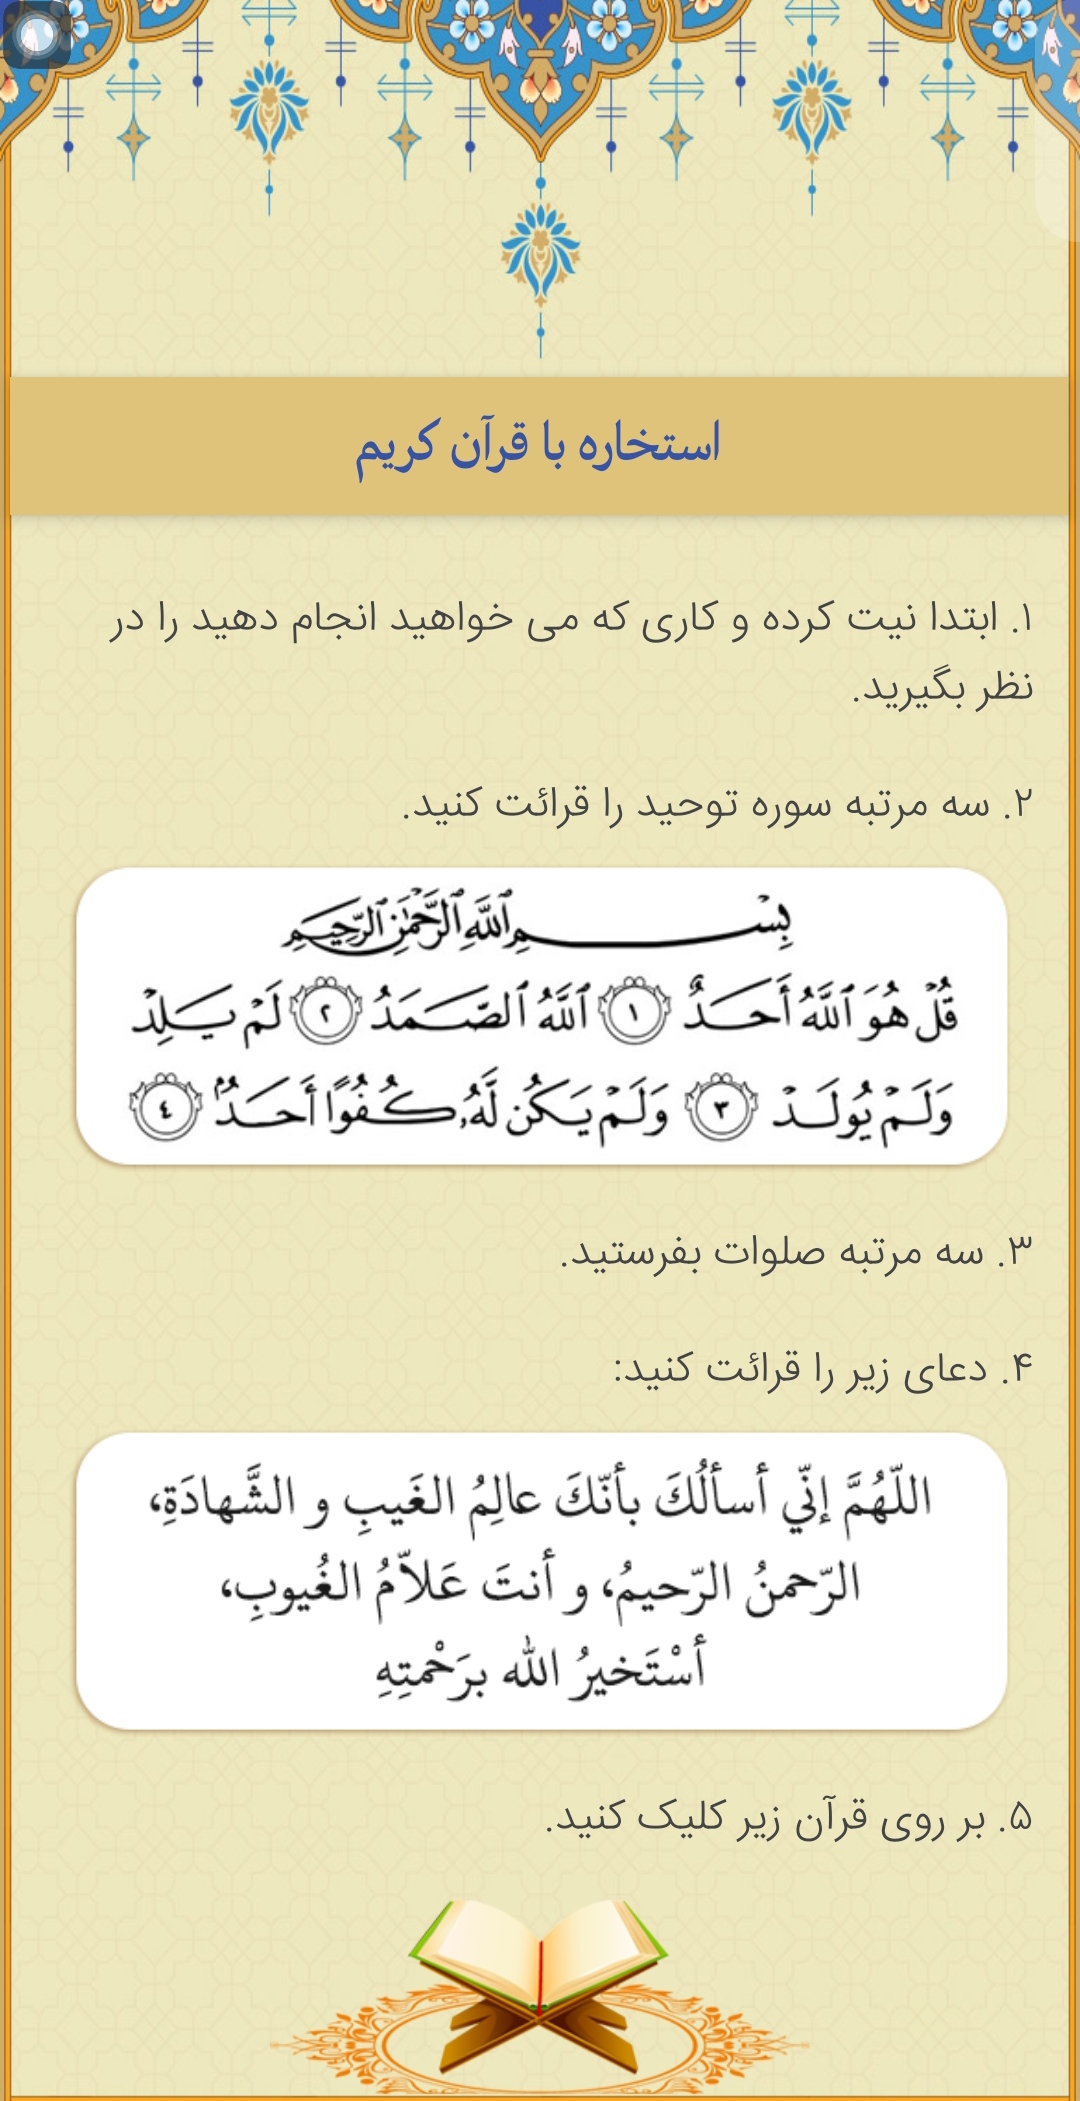 استخاره با قرآن کریم
۱. ابتدا نیت کرده و کاری که می خواهید انجام دهید را در
نظر بگیرید.
۲. سه مرتبه سوره توحید را قرائت کنید.
بِسْمِ ٱللَّهِ ٱلرَّحْمَٰنِ ٱلرَّحِيمِ
قُلْ هُوَ ٱللَّهُ أَحَدٌ ١ ٱللَّهُ ٱلصَّمَدُ ٢ لَمْ يَلِدْ
وَلَمْ يُولَدْ ٣ وَلَمْ يَكُن لَّهُۥ كُفُوًا أَحَدٌۢ ٤
۳. سه مرتبه صلوات بفرستید.
۴. دعای زیر را قرائت کنید:
اللّهُمَّ إنّي أسألُكَ بأنّكَ عالِمُ الغَيبِ و الشَّهادَةِ،
الرّحمنُ الرّحيمُ، و أنتَ عَلاّمُ الغُيوبِ،
أسْتَخيرُ الله برَحْمتِهِ
۵. بر روی قرآن زیر کلیک کنید.